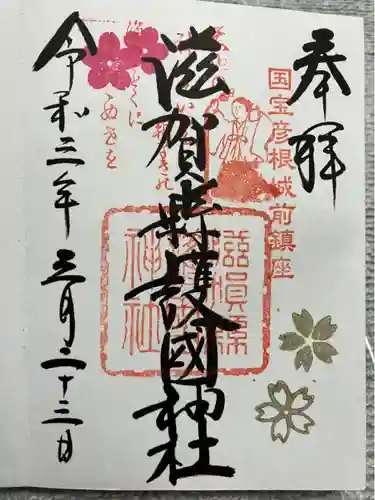 奉拝
国宝彦根城前鎮座
滋賀縣護國神社
滋賀縣
護國
神社
令和三年三月二十三日